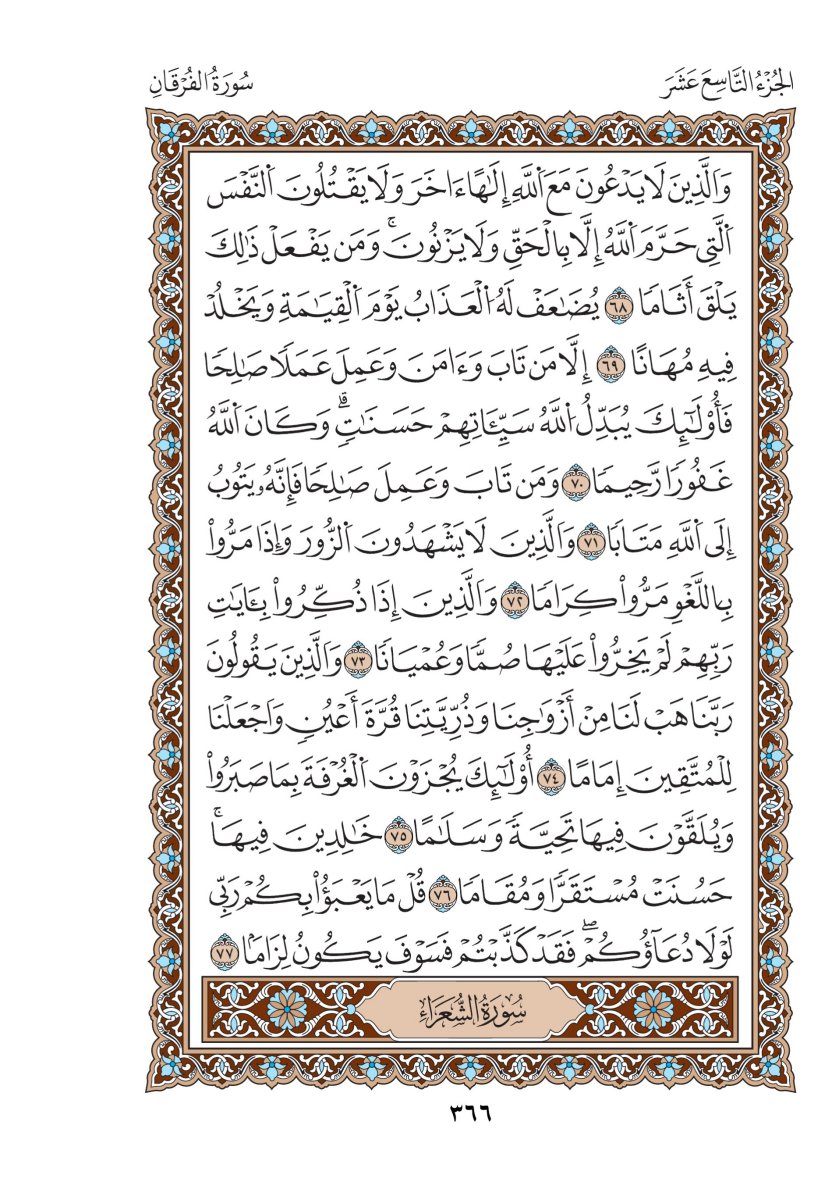 الجُزْءُ التَّاسِعَ عَشَرَ
سُورَةُ الفُرْقَانِ
وَٱلَّذِينَ لَا يَدْعُونَ مَعَ ٱللَّهِ إِلَـٰهًا ءَاخَرَ وَلَا يَقْتُلُونَ ٱلنَّفْسَ
ٱلَّتِى حَرَّمَ ٱللَّهُ إِلَّا بِالْحَقِّ وَلَا يَزْنُونَ ۚ وَمَن يَفْعَلْ ذَٰلِكَ
يَلْقَ أَثَامًا ٦٨ يُضَـٰعَفْ لَهُ ٱلْعَذَابُ يَوْمَ ٱلْقِيَـٰمَةِ وَيَخْلُدْ
فِيهِ مُهَانًا ٦٩ إِلَّا مَن تَابَ وَءَامَنَ وَعَمِلَ عَمَلًا صَـٰلِحًا
فَأُوْلَـٰٓئِكَ يُبَدِّلُ ٱللَّهُ سَيِّـَٔاتِهِمْ حَسَنَـٰتٍ ۗ وَكَانَ ٱللَّهُ
غَفُورًا رَّحِيمًا ٧٠ وَمَن تَابَ وَعَمِلَ صَـٰلِحًا فَإِنَّهُۥ يَتُوبُ
إِلَى ٱللَّهِ مَتَابًا ٧١ وَٱلَّذِينَ لَا يَشْهَدُونَ ٱلزُّورَ وَإِذَا مَرُّواْ
بِاللَّغْوِ مَرُّواْ كِرَامًا ٧٢ وَٱلَّذِينَ إِذَا ذُكِّرُواْ بِـَٔايَـٰتِ
رَبِّهِمْ لَمْ يَخِرُّواْ عَلَيْهَا صُمًّا وَعُمْيَانًا ٧٣ وَٱلَّذِينَ يَقُولُونَ
رَبَّنَا هَبْ لَنَا مِنْ أَزْوَٰجِنَا وَذُرِّيَّتِنَا قُرَّةَ أَعْيُنٍ وَٱجْعَلْنَا
لِلْمُتَّقِينَ إِمَامًا ٧٤ أُوْلَـٰٓئِكَ يُجْزَوْنَ ٱلْغُرْفَةَ بِمَا صَبَرُواْ
وَيُلَقَّوْنَ فِيهَا تَحِيَّةً وَسَلَـٰمًا ٧٥ خَـٰلِدِينَ فِيهَا ۚ
حَسُنَتْ مُسْتَقَرًّا وَمُقَامًا ٧٦ قُلْ مَا يَعْبَؤُاْ بِكُمْ رَبِّى
لَوْلَا دُعَآؤُكُمْ ۖ فَقَدْ كَذَّبْتُمْ فَسَوْفَ يَكُونُ لِزَامًۢا ٧٧
سُورَةُ الشُّعَرَاءِ
٣٦٦